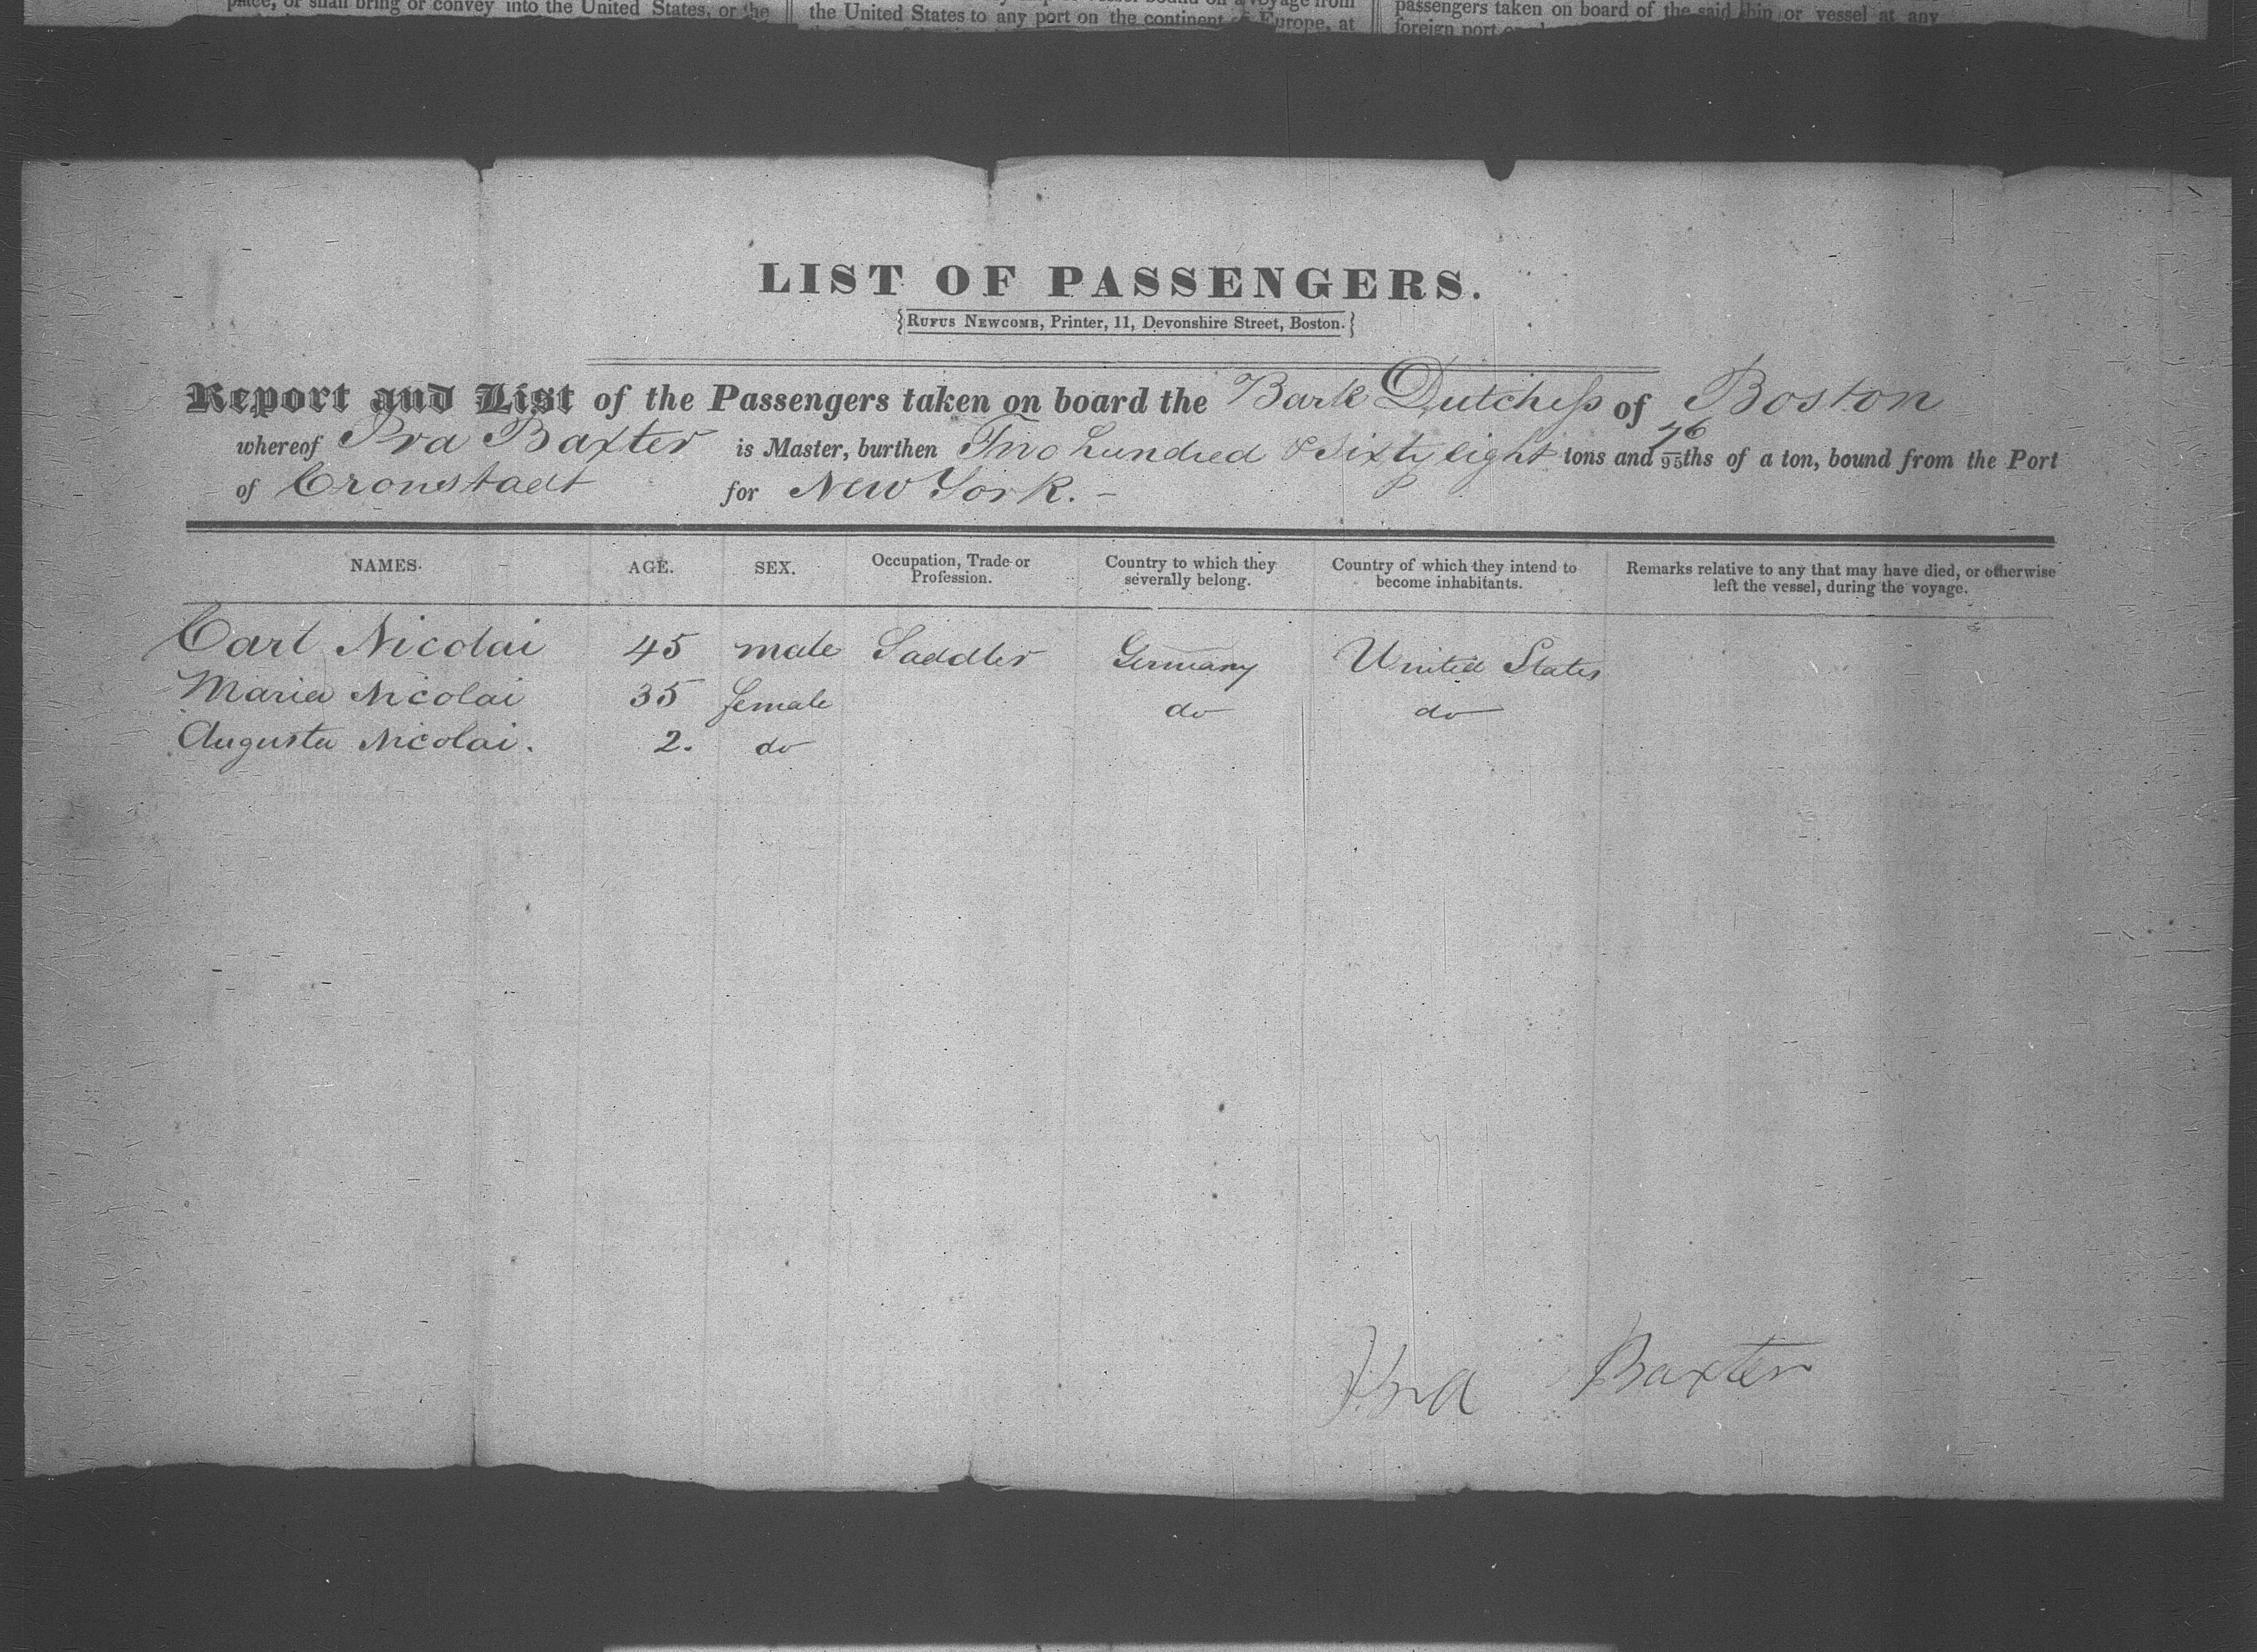 place, or shall bring or convey into the United States, or the
the United States to any port on the continent of Europe, at
passengers taken on board of the said ship or vessel at any
foreign port
LIST OF PASSENGERS.
{RUFUS NEWCOMB, Printer, 11, Devonshire Street, Boston.}
Report and List of the Passengers taken on board the Bark Dutchess of Boston
whereof Ira Baxter is Master, burthen Two hundred & Sixty eight tons and 76/95ths of a ton, bound from the Port
of Cronstadt for New York. -
NAMES. AGE. SEX. Occupation, Trade or Profession. Country to which they severally belong. Country of which they intend to become inhabitants. Remarks relative to any that may have died, or otherwise left the vessel, during the voyage.
Carl Nicolai 45 male Saddler Germany United States
Maria Nicolai 35 female do do
Augusta Nicolai. 2. do
Ira Baxter